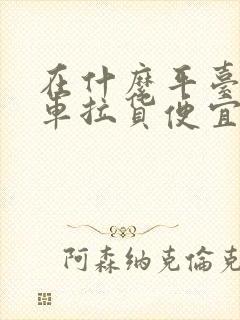 在什麼平臺
車拉貨便宜
阿森納克倫克